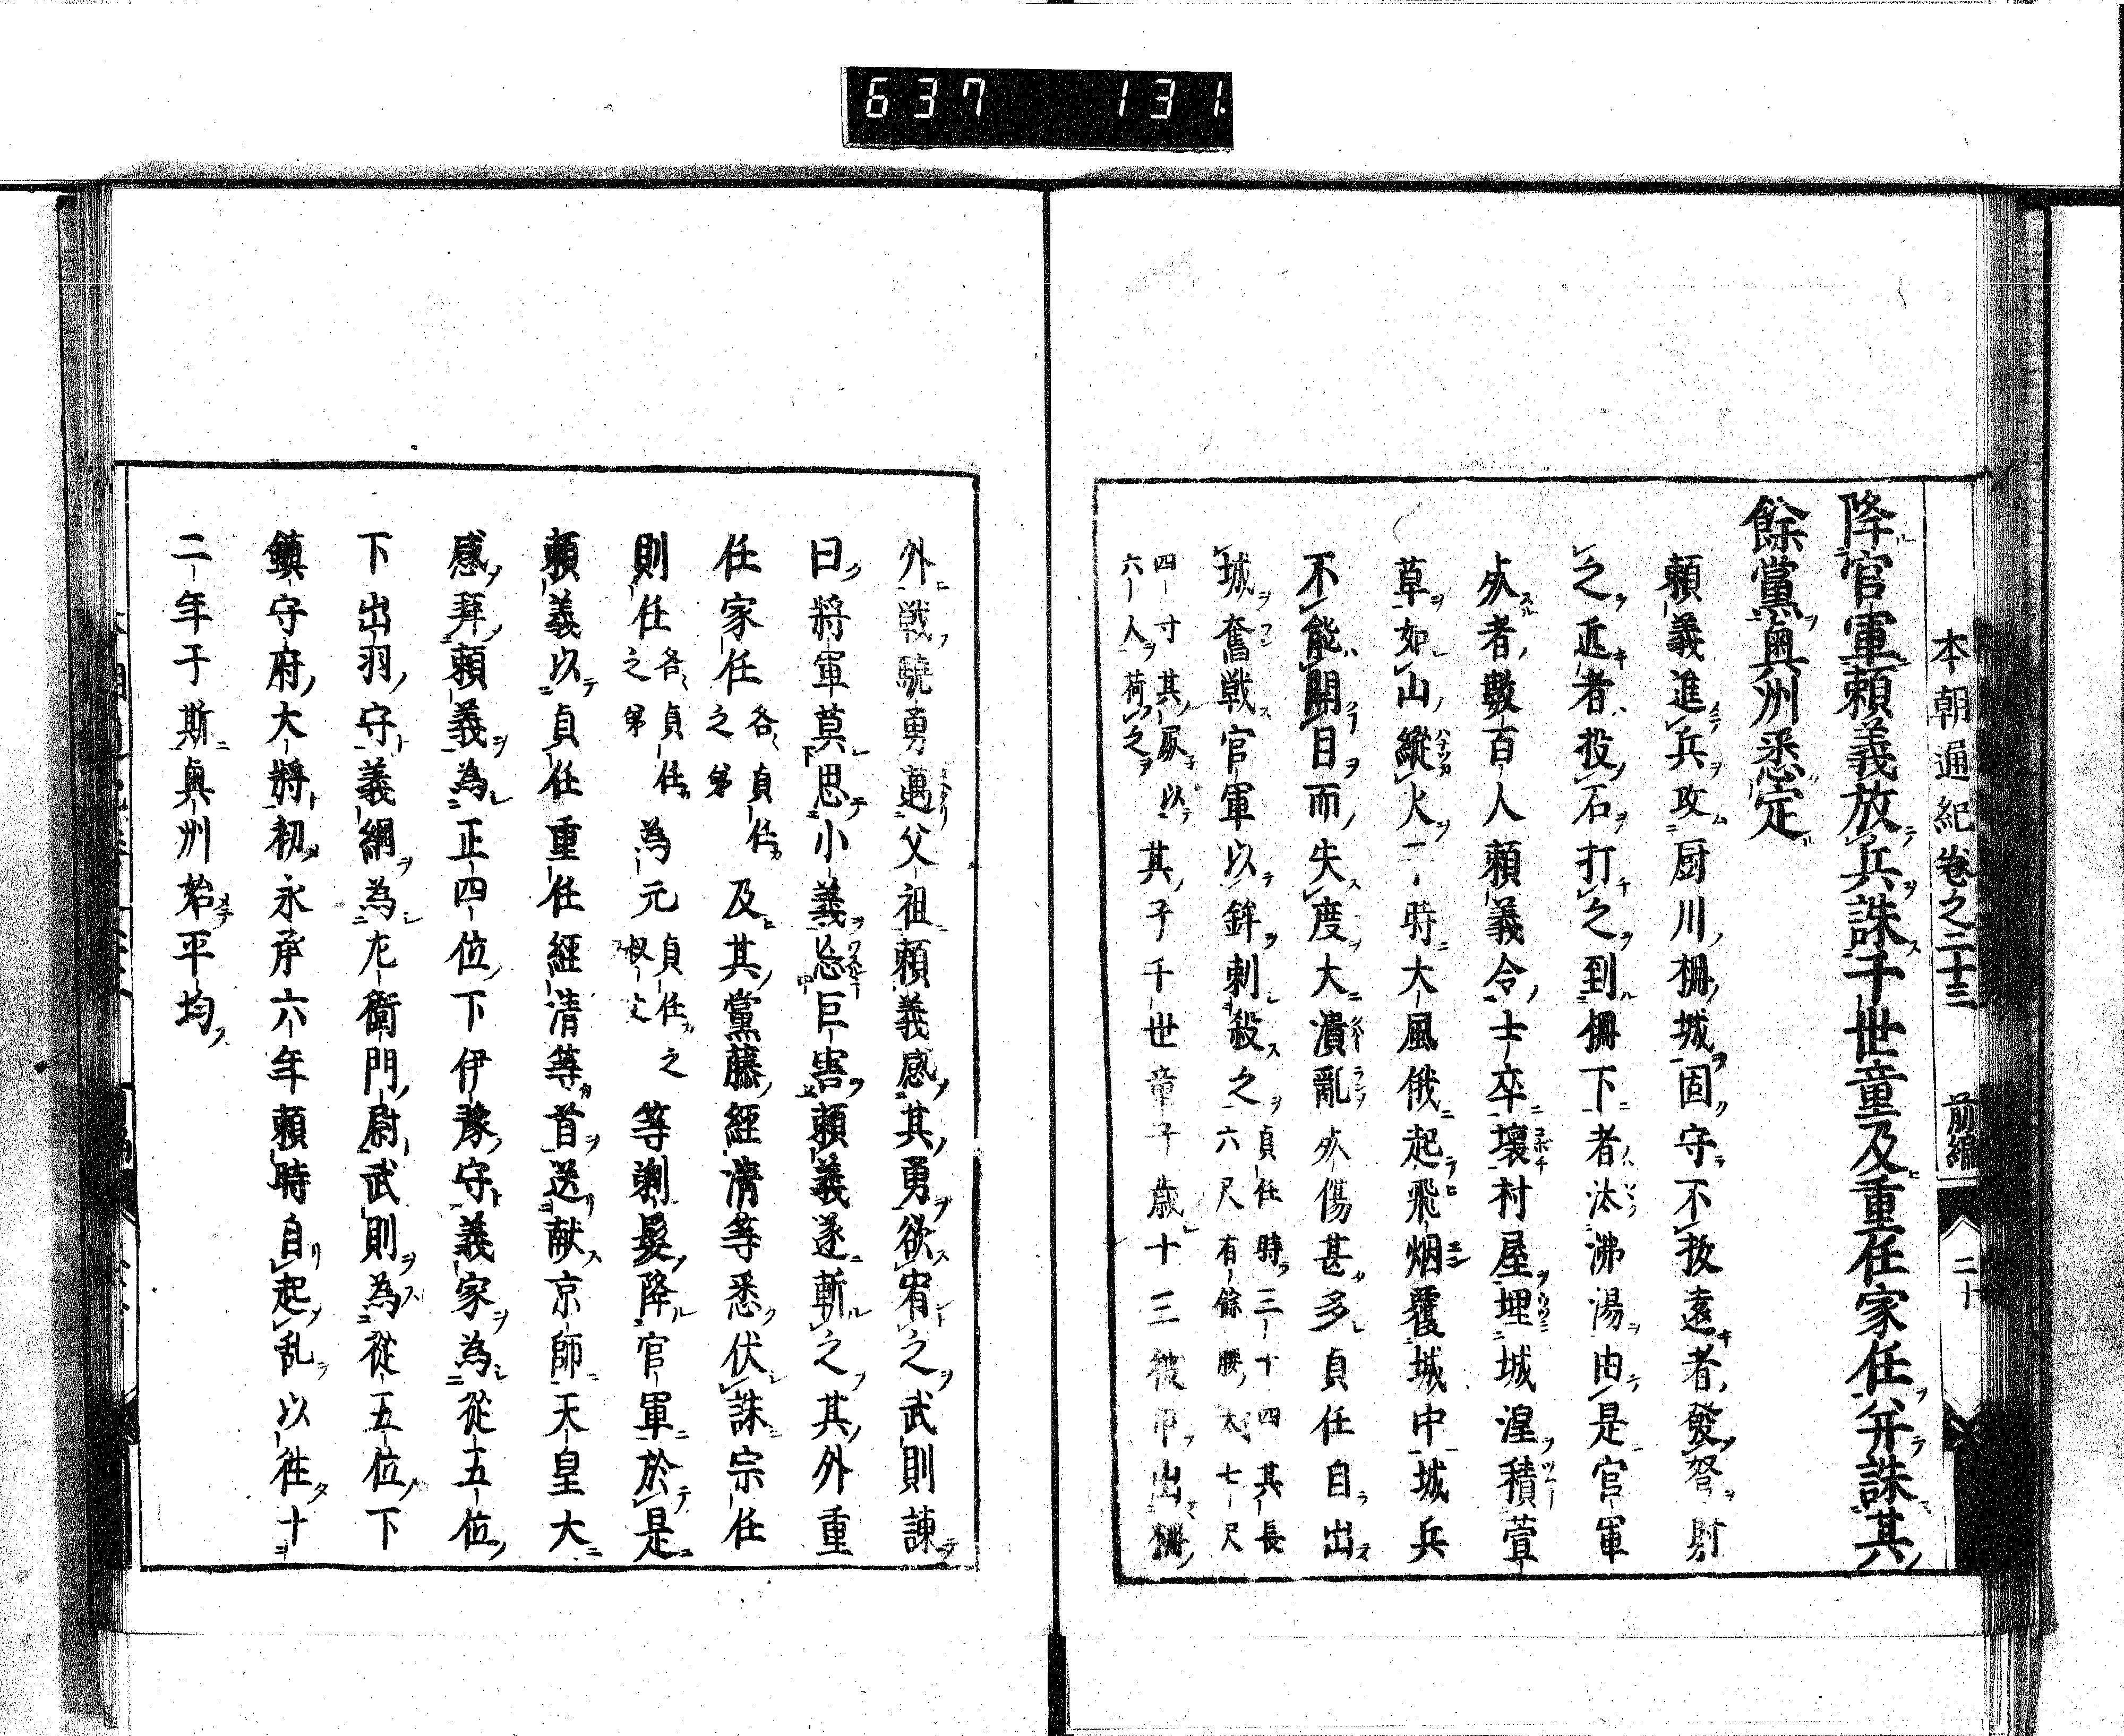 637 131
本朝通紀卷之二十三 前編 二十
降官軍頼義放兵誅千世童及重任家任并誅其
餘黨奥州悉定
頼義進兵攻厨川柵城固守不拔遠者發弩射
之近者投石打之到柵下者汰沸湯由是官軍
死者數百人頼義令士卒壞村屋埋城湟積萱
草如山縱火一時大風俄起飛烟覆城中城兵
不能開目而失度大潰亂死傷甚多貞任自出
城奮戦官軍以鉾刺殺之貞任時三十四其長六尺有餘腰大七尺
四寸其屍以六人荷之其子千世童子歳十三被甲出柵
外戦驍勇邁父祖頼義感其勇欲宥之武則諫
曰將軍莫思小義忘巨害頼義遂斬之其外重
任家任各貞任之弟及其黨藤經清等悉伏誅宗任
則任各貞任之弟為元貞任之叔父等剃髮降官軍於是
頼義以貞任重任經清等首送献京師天皇大
感拜頼義為正四位下伊豫守義家為從五位
下出羽守義綱為左衛門尉武則為從五位下
鎮守府大將初永承六年頼時自起乱以徃十
二年于斯奥州始平均